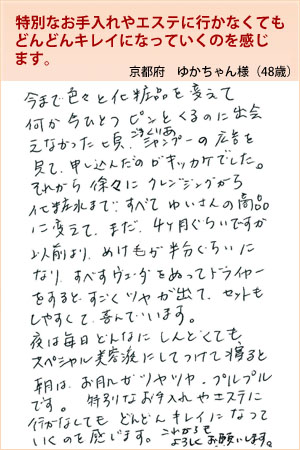 特別なお手入れやエステに行かなくても
どんどんキレイになっていくのを感じ
ます。
京都府　ゆかちゃん様（48歳）
今まで色々と化粧品を変えて
何か今ひとつピンとくるのに出会
えなかった頃、シャンプーの広告を
見て、申し込んだのがキッカケでした。
それから徐々にクレンジングから
化粧水まで、すべてゆいさんの商品
に変えて、まだ、4ヶ月ぐらいですが
以前より、ぬけ毛が半分ぐらいに
なり、すべすヴェーダをぬってドライヤー
をすると、すごくツヤが出て、セットも
しやすくて、喜んでいます。
夜は毎日どんなにしんどくても
スペシャル美容液にしてつけて寝ると
朝は、お肌がツヤツヤ・プルプル
です。 特別なお手入れやエステに
行かなくても どんどんキレイになって
いくのを感じます。これからも
よろしくお願いします。